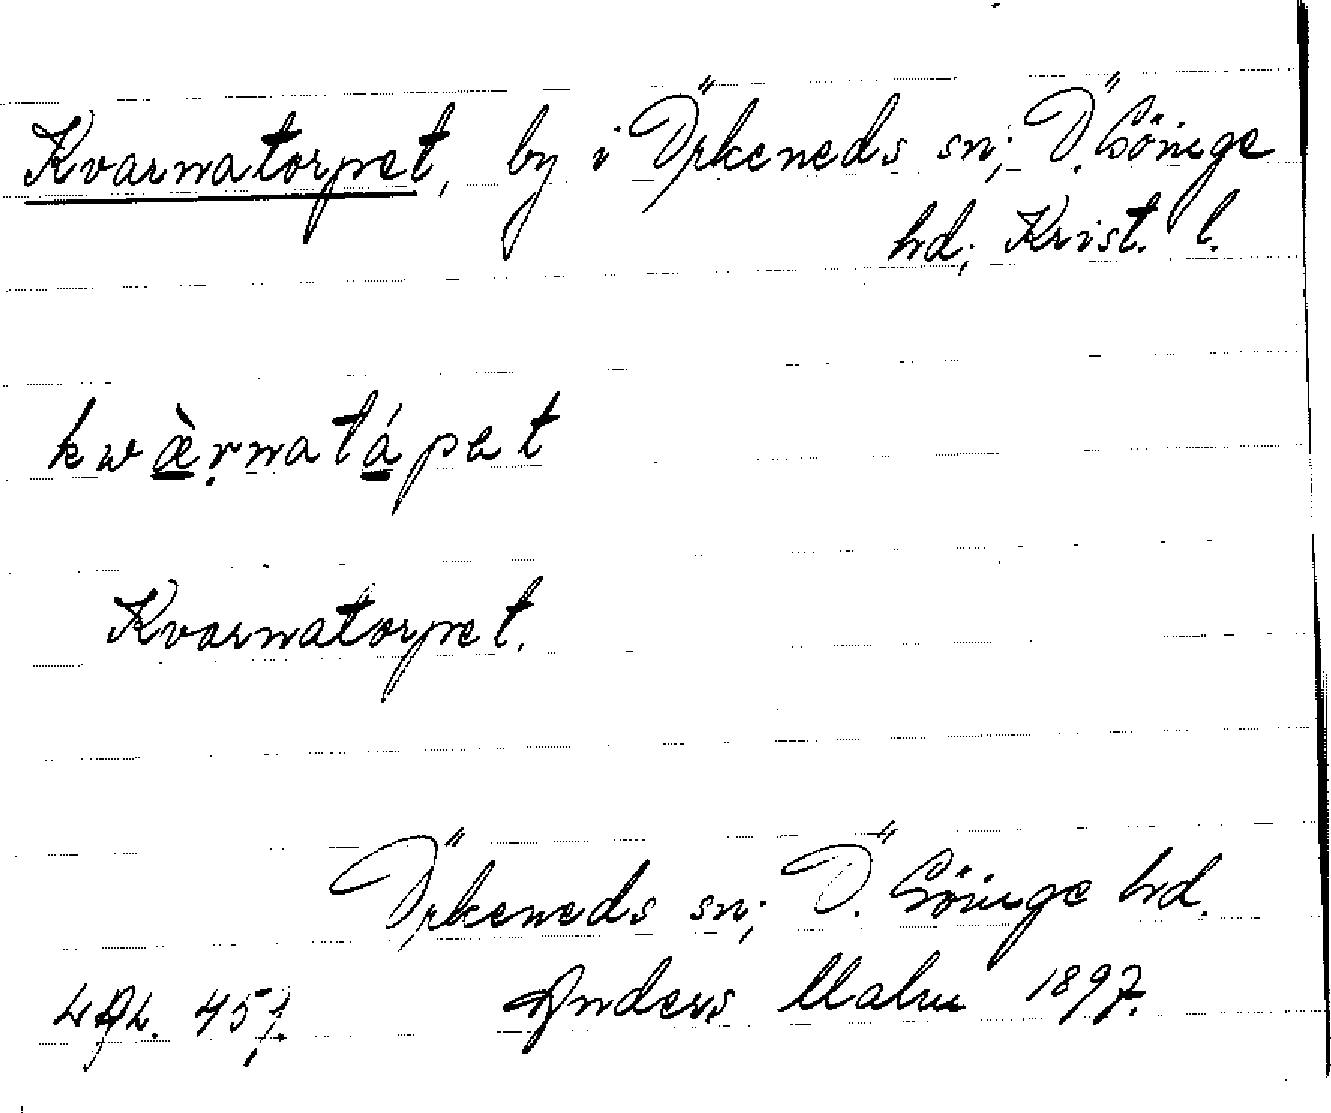 Kvarnatorpet, by i Örkeneds sn; Ö. Göinge
hd; Krist. l.
kwæ̀ṛnatápet
Kvarnatorpet.
Örkeneds sn; Ö. Göinge hd.
457. Anders Malm 1897.